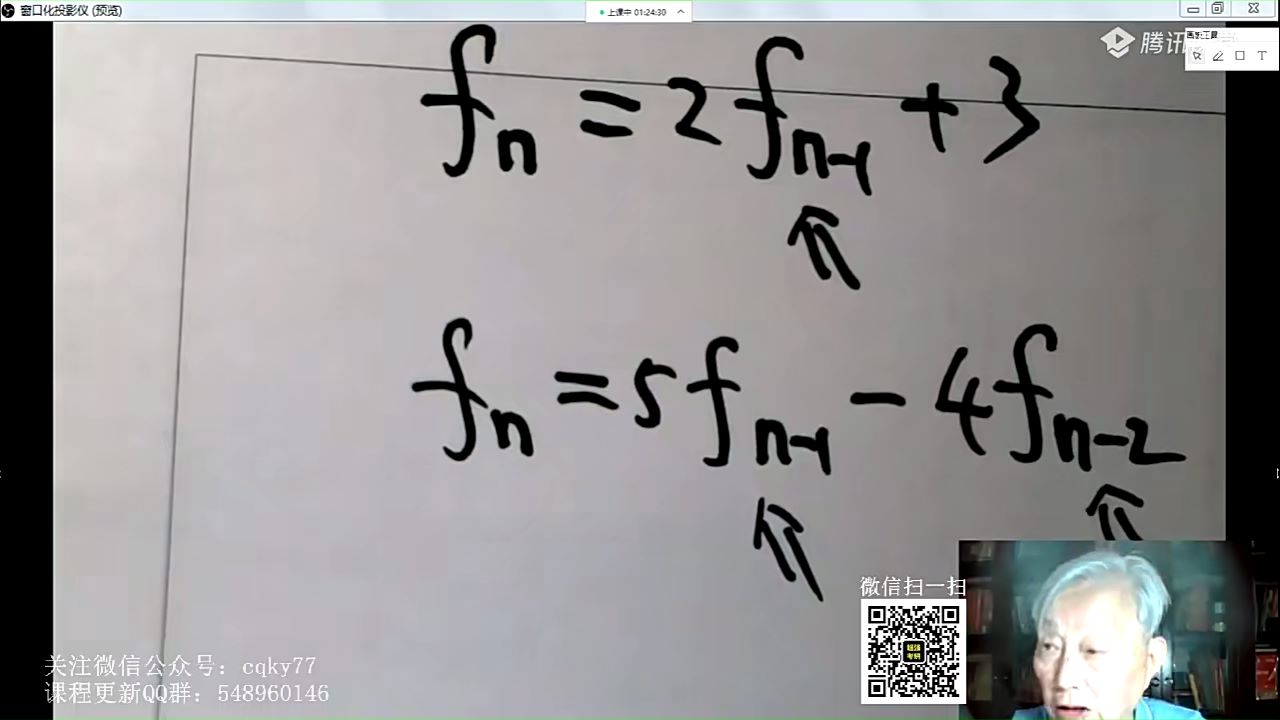 窗口化投影仪 (预览)
上课中 01:24:30
腾讯
画板工具
T
fn = 2fn-1 + 3
fn = 5fn-1 - 4fn-2
微信扫一扫
关注微信公众号：cqky77
课程更新QQ群：548960146